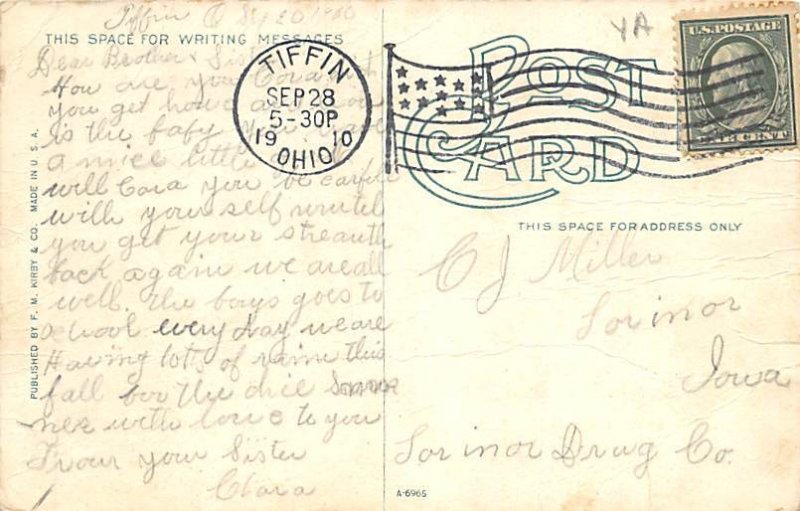 Tiffin O
THIS SPACE FOR WRITING MESSAGES
Dear Brother & Sister
How are you Cora
you get
is the baby you
a nice little
will Cora you be carful
with your self untel
you get your streanth
back again we are all
well. the boys goes to
school every day we are
Having lots of rain this
fall
with love to you
From your Sister
Clara
PUBLISHED BY F. M. KIRBY & CO. MADE IN U.S.A.
TIFFIN
SEP 28
5-30P
1910
OHIO
YA
U.S. POSTAGE
CENT
POST
CARD
THIS SPACE FOR ADDRESS ONLY
C J Miller
Sorinor
Iowa
Sorinor Drug Co.
A-6965